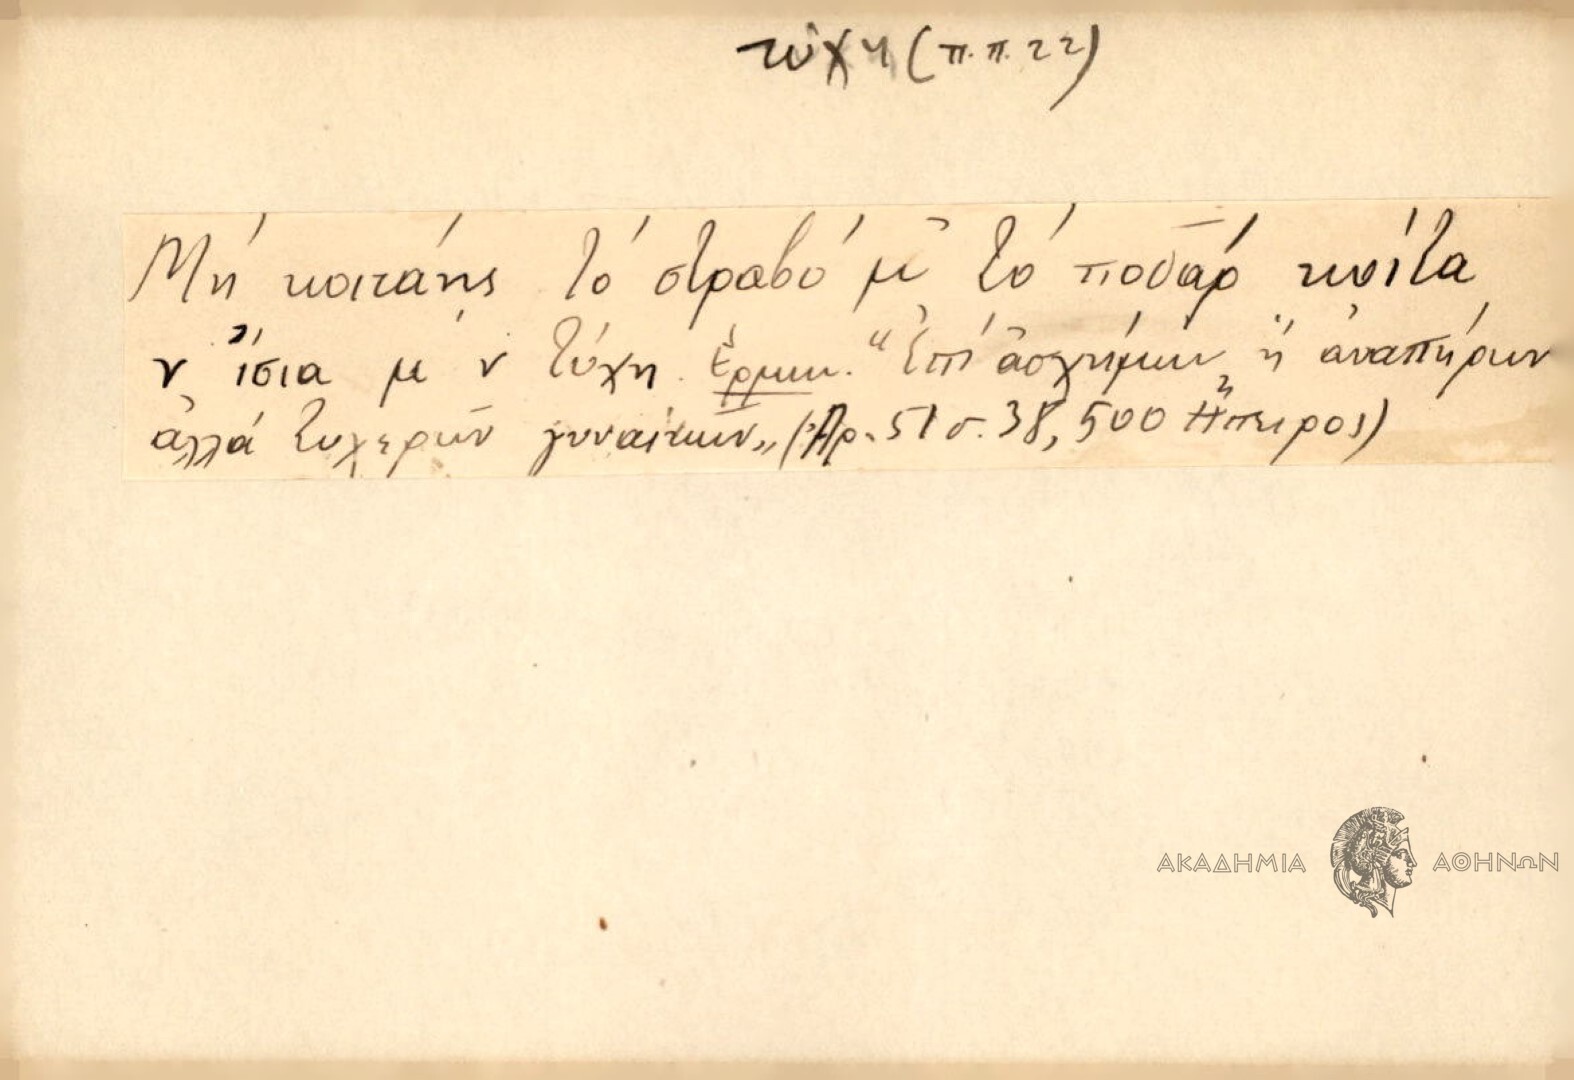 τύχη (π.π. 22)
Μή κοιτάης τό στραβό μ̓ τό ποδάρ κοίτα
ν ἴσια μ ν τύχη. Ἑρμην. "Ἐπί ἀσχήμων ἤ ἀναπήρων
ἀλλά τυχερῶν γυναικῶν„ (Ἀρ. 51 σ. 38, 500 Ἤπειρος)
ΑΚΑΔΗΜΙΑ ΑΘΗΝΩΝ